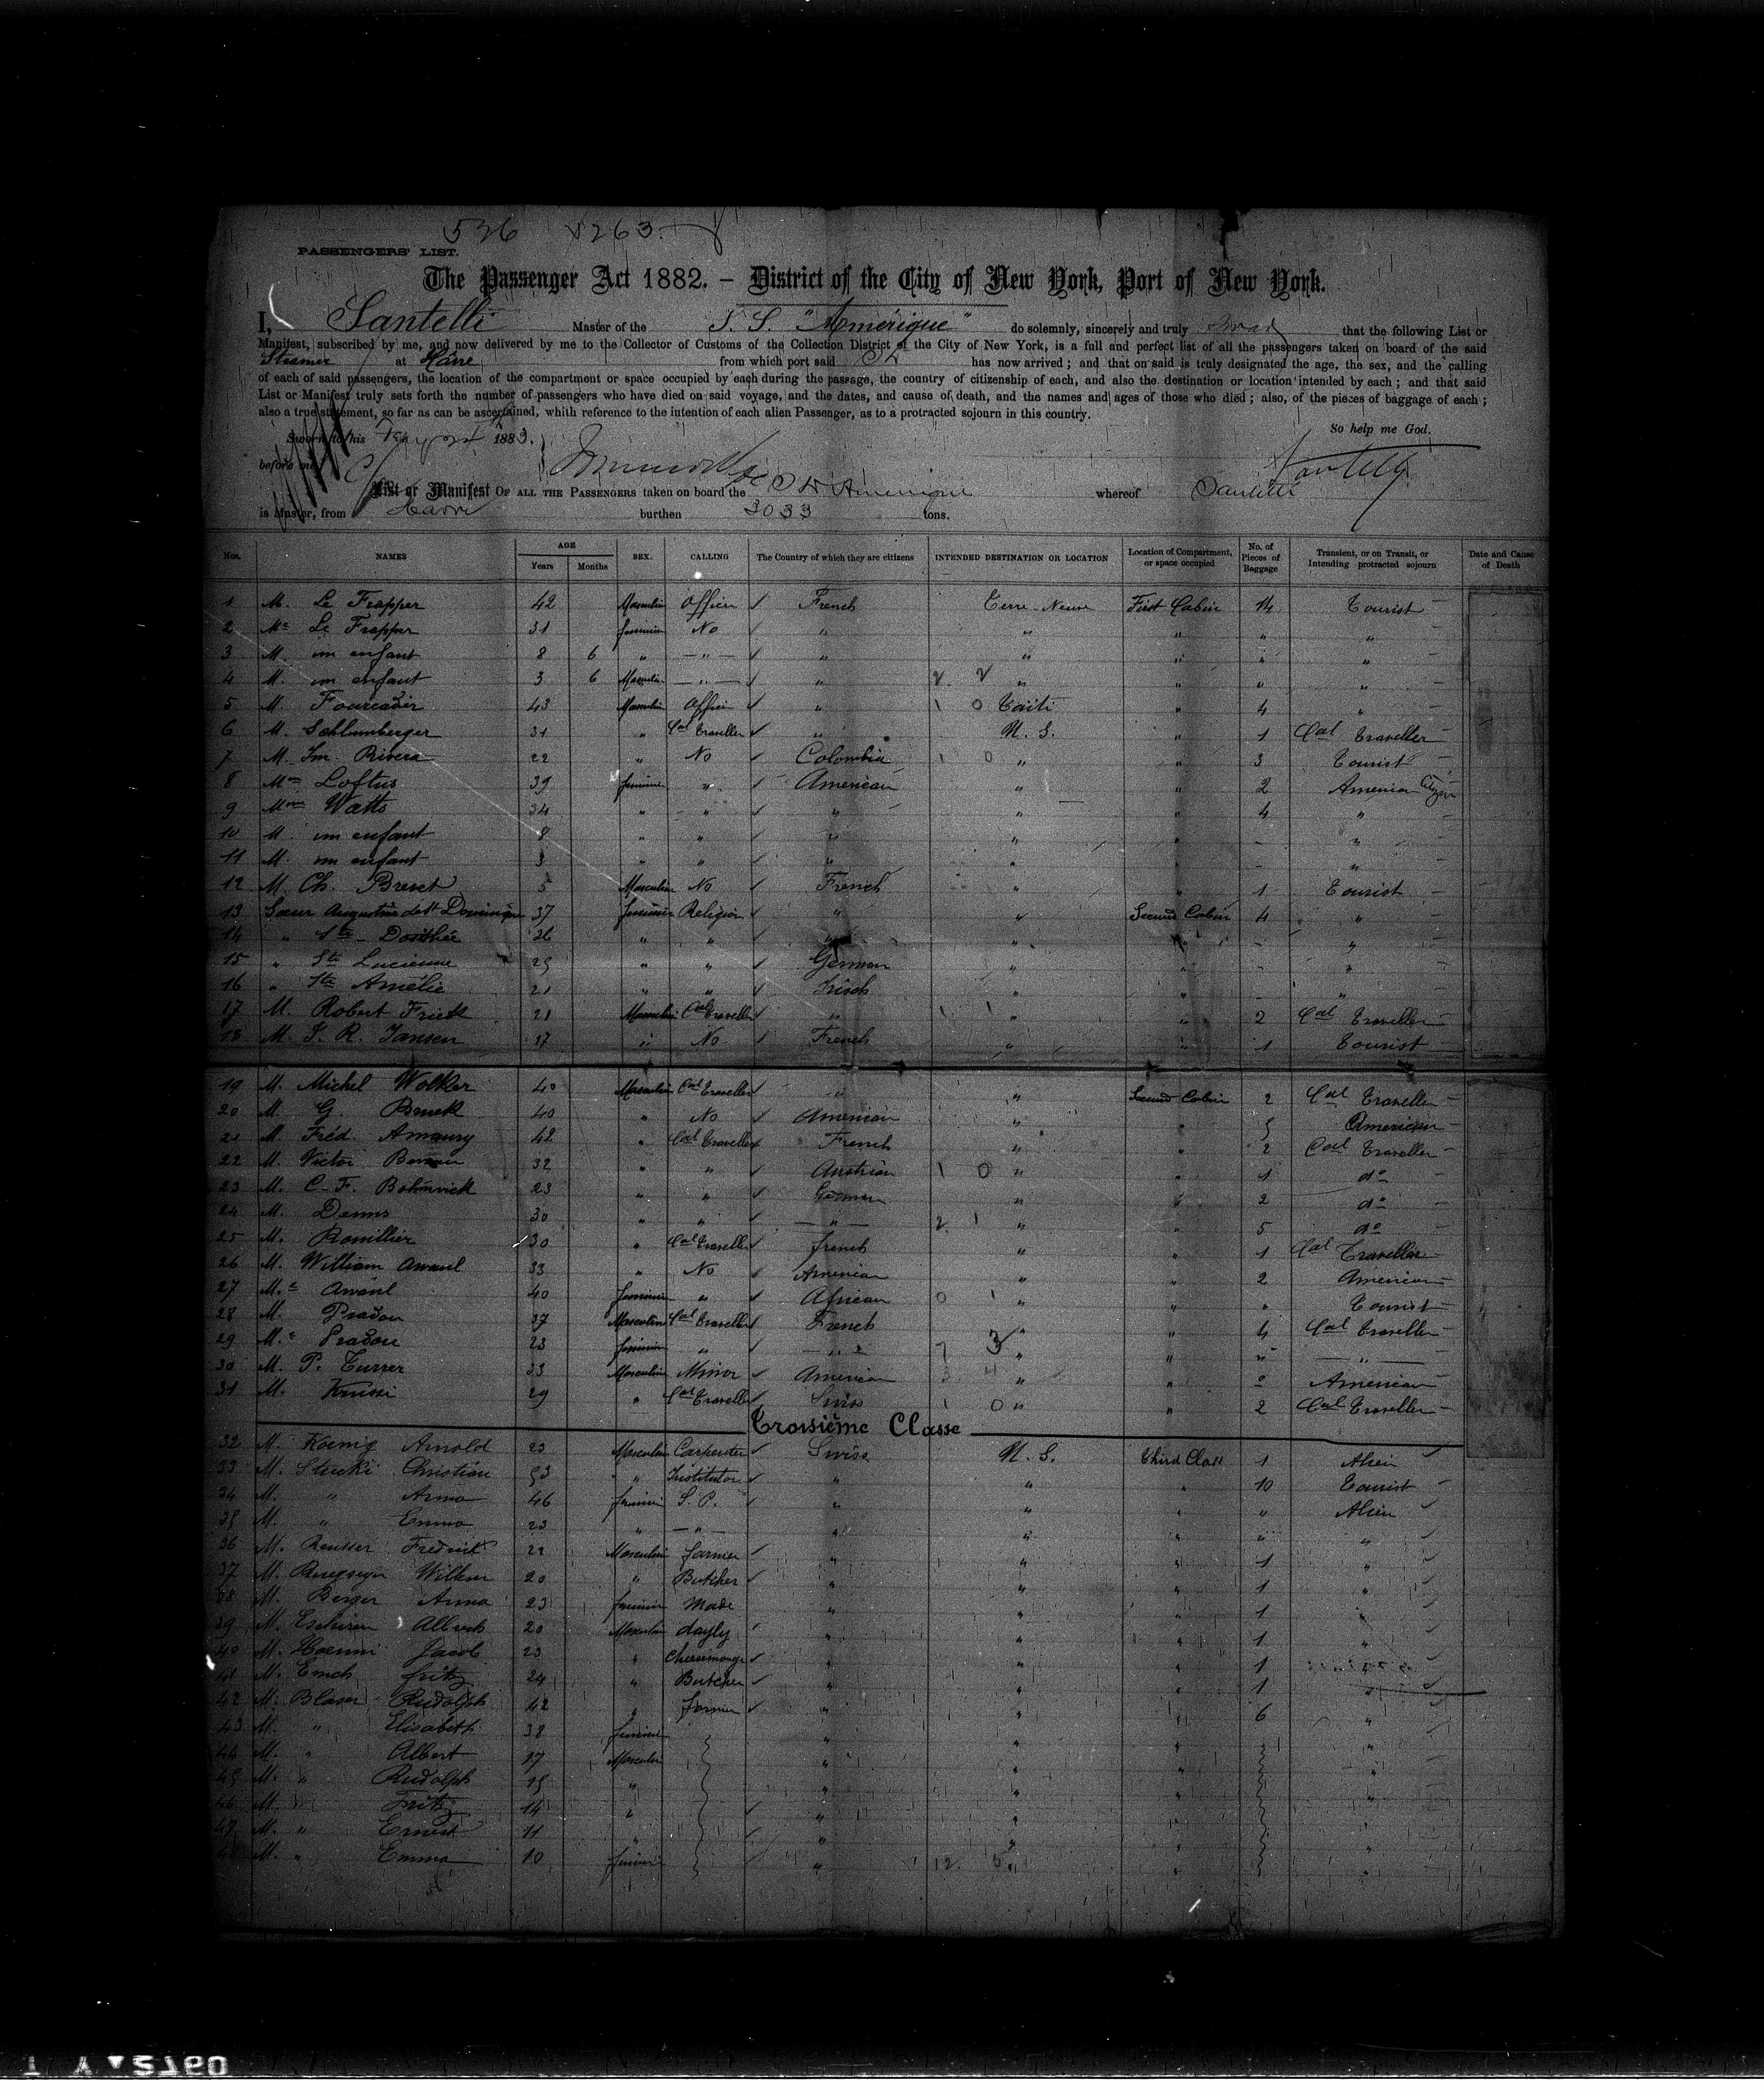 526 263.
PASSENGERS' LIST.
The Passenger Act 1882. – District of the City of New York, Port of New York.
I, Santelli Master of the S. S. "Amérique" do solemnly, sincerely and truly that the following List or
Manifest, subscribed by me, and now delivered by me to the Collector of Customs of the Collection District of the City of New York, is a full and perfect list of all the passengers taken on board of the said
Steamer at Hâvre from which port said has now arrived ; and that on said is truly designated the age, the sex, and the calling
of each of said passengers, the location of the compartment or space occupied by each during the passage, the country of citizenship of each, and also the destination or location intended by each ; and that said
List or Manifest truly sets forth the number of passengers who have died on said voyage, and the dates, and cause of death, and the names and ages of those who died ; also, of the pieces of baggage of each ;
also a true statement, so far as can be ascertained, whith reference to the intention of each alien Passenger, as to a protracted sojourn in this country.
So help me God.
Sworn to this 1883.
before me
List or Manifest OF ALL THE PASSENGERS taken on board the Amerique whereof Santelli
is Master, from Havre burthen 3033 tons.
Nos. NAMES AGE Years Months SEX. CALLING The Country of which they are citizens INTENDED DESTINATION OR LOCATION Location of Compartment, or space occupied No. of Pieces of Baggage Transient, or on Transit, or Intending protracted sojourn Date and Cause of Death
1 M. Le Frapper 42 Masculin Officer French Terre-Neuve First Cabin 14 Tourist
2 Me Le Frapper 31 feminin No " " " " "
3 M. un enfant 8 6 " " " " " " "
4 M. un enfant 3 6 Masculin " " " " " "
5 M. Fourcadier 43 Masculin Officer " Taiti " 4 "
6 M. Schlumberger 31 " Cal Traveller " U. S. " 1 Cal Traveller
7 M. Rivera 22 " No Colombia " " 3 Tourist
8 Mme Loftus 39 feminin " American " " 2 American Citizen
9 Mme Watts 34 " " " " " 4 "
10 M. un enfant 8 " " " " " - "
11 M. un enfant " " " " " - "
12 M. Ch. Brent 5 Masculin No French " " 1 Tourist
13 Soeur Augustin de St Dominique 37 feminin Religion " " Second Cabin 4 "
14 " Ste Dosithée 26 " " " " " - "
15 " Ste Lucienne 25 " " German " " - "
16 " Ste Amélie 21 " " Irisch " " - "
17 M. Robert Friek 21 Masculin Cal Traveller " " " 2 Cal Traveller
18 M. J. R. Jansen 17 " No French " " 1 Tourist
19 M. Michel Wolker 40 Masculin Cal Traveller " " Second Cabin 2 Cal Traveller
20 M. G. 40 " No American " " 5 American
21 M. Fréd. Amaury 42 " Cal Traveller French " " 2 Cal Traveller
22 M. Victor 32 " " Austrian " " 1 do
23 M. C. F. 23 " " German " " 2 do
24 M. Denns 30 " " " " " 5 do
25 M. Rouillier 30 " Cal Traveller french " " 1 Cal Traveller
26 M. William 33 " No American " " 2 American
27 Me 40 feminin " African " " " Tourist
28 M. Pradou 37 Masculin Cal Traveller French " " 4 Cal Traveller
29 Me Pradou 23 feminin " " " " " "
30 M. P. Turrer 33 Masculin Minor American " " American
31 M. 29 " Cal Traveller Swiss " " 2 Cal Traveller
Troisième Classe
32 M. Koenig Arnold 23 Masculin Carpenter Swiss U. S. Third Class 1 Alien
33 M. Stucki Christian 53 " Institutor " " " 10 Tourist
34 M. " Anna 46 feminin S. P. " " " " Alien
35 M. " Emma 23 " " " " " " "
36 M. Reusser Fredrick 22 Masculin farmer " " " 1 "
37 M. 20 " Butcher " " " 1 "
38 M. Berger Anna 23 feminin Made " " " 1 "
39 M. 20 Masculin dayly " " " 1 "
40 M. Hoenni Jacob 23 " " " " 1 "
41 M. Emch fritz 24 " Butcher " " " 1 "
42 M. Blaser Rudolph 42 " farmer " " " 6 "
43 M. " Elisabeth 38 feminin " " " "
44 M. " Albert 17 Masculin " " " "
45 M. " Rudolph 15 " " " " "
46 M. " Fritz 14 " " " " "
47 M. " Ernest 11 " " " " "
48 M. " Emma 10 feminin " " " "